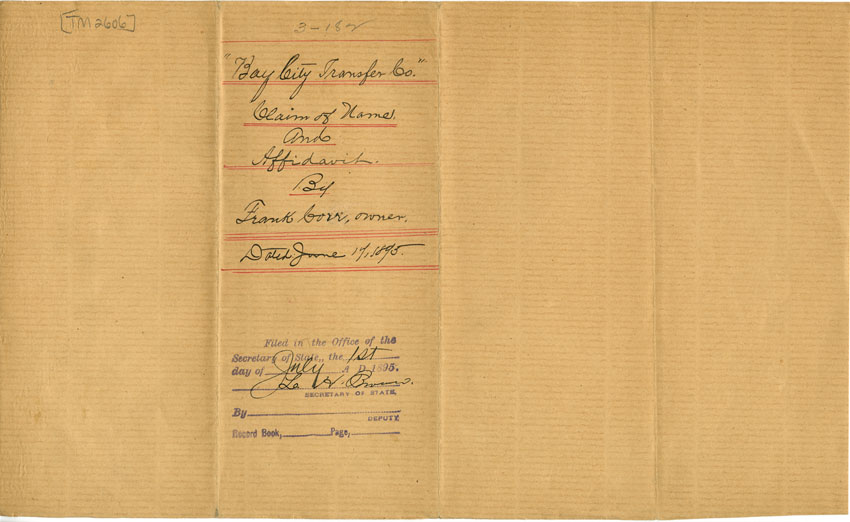 [TM 2606]
3-182
"Bay City Transfer Co."
Claim of Name.
And
Affidavit.
By
Frank Corr, owner.
Dated June 17, 1895.
Filed in the Office of the
Secretary of State, the 1st
day of July A D 1895.
L. H. Brown.
SECRETARY OF STATE,
By
DEPUTY.
Record Book, Page,